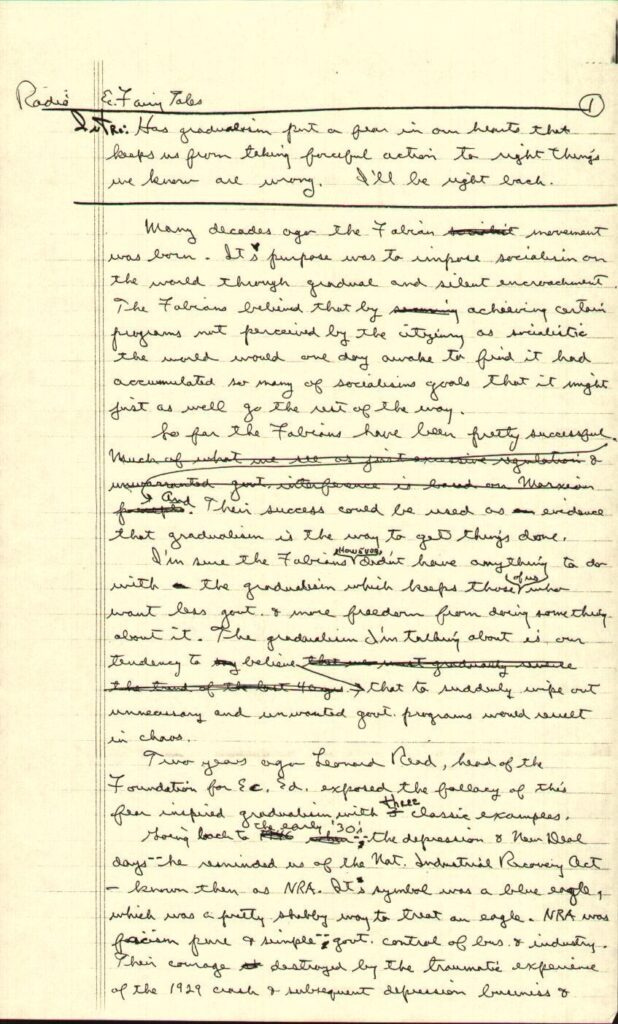 Radio Ec. Fairy Tales 1
Intro: Has gradualism put a fear in our hearts that
keeps us from taking forceful action to right things
we know are wrong. I'll be right back.
Many decades ago the Fabian socialist movement
was born. It's purpose was to impose socialism on
the world through gradual and silent encroachment.
The Fabians believed that by securing achieving certain
programs not perceived by the citizenry as socialistic
the world would one day awake to find it had
accumulated so many of socialisms goals that it might
just as well go the rest of the way.
So far the Fabians have been pretty successful.
Much of what we see as just excessive regulation &
unwarranted govt. interference is based on Marxian
principle. And Their success could be used as an evidence
that gradualism is the way to get things done.
I'm sure the Fabians however didn't have anything to do
with the gradualism which keeps those of us who
want less govt. & more freedom from doing something
about it. The gradualism I'm talking about is our
tendency to believe that we must gradually
the of the last 40 yrs. that to suddenly wipe out
unnecessary and unwanted govt. programs would result
in chaos.
Two years ago Leonard Read, head of the
Foundation for Ec. Ed. exposed the fallacy of this
fear inspired gradualism with three classic examples.
Going back to the early '30's, the depression & New Deal
days -- he reminded us of the Nat. Industrial Recovery Act
- known then as NRA. It's symbol was a blue eagle,
which was a pretty shabby way to treat an eagle. NRA was
fascism pure & simple -- govt. control of bus. & industry.
Their courage destroyed by the traumatic experience
of the 1929 crash & subsequent depression business &